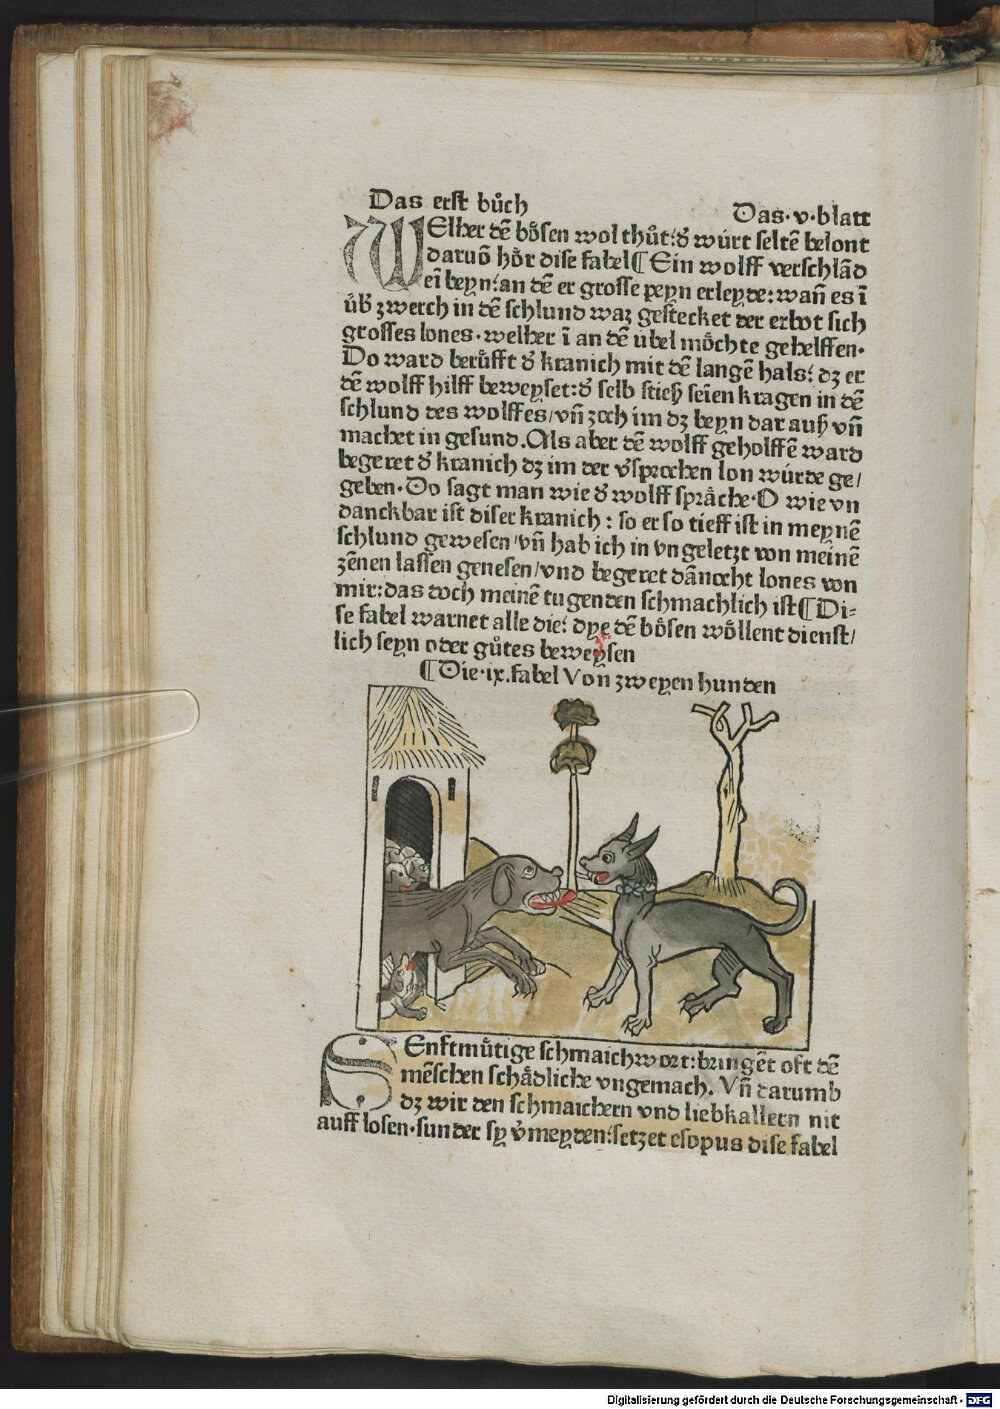 Das erst bůch Das·v·blatt
WElher dē bösen wol thůt/ď würt seltē belont
daruō hör dise fabel⁋Ein wolff verschlād
ei beyn/an dē er grosse peyn erleyde: wañ es ī
üb̓ zwerch in dē schlund waz gestecket der erbot sich
grosses lones·welher ī an dē übel möchte gehelffen·
Do ward berůfft ď kranich mit dē langē hals/dz er
dē wolff hilff beweyset:ď selb stieß seien kragen in dē
schlund des wolffes/vñ zoch im dz beyn dar auß vñ
machet in gesund.Als aber dē wolff geholffē ward
begeret ď kranich dz im der v̓sprochen lon würde ge/
geben·Do sagt man wie ď wolff spräche·O wie vn
danckbar ist diser kranich: so er so tieff ist in meynē
schlund gewesen/vñ hab ich in vngeletzt von meinē
zēnen lassen genesen/vnd begeret dānocht lones von
mir:das doch meinē tugenden schmachlich ist⁋Di-
se fabel warnet alle die/dye dē bösen wöllent dienst/
lich seyn oder gůtes beweysen
⁋Die·ix.fabel Von zweyen hunden
SEnftmůtige schmaichwort:bringēt oft dē
mēschen schädliche vngemach. Vñ darumb
dz wir den schmaichern vnd liebkallern nit
auff losen·sunder sy v̓meyden/setzet esopus dise fabel
Digitalisierung gefördert durch die Deutsche Forschungsgemeinschaft - DFG